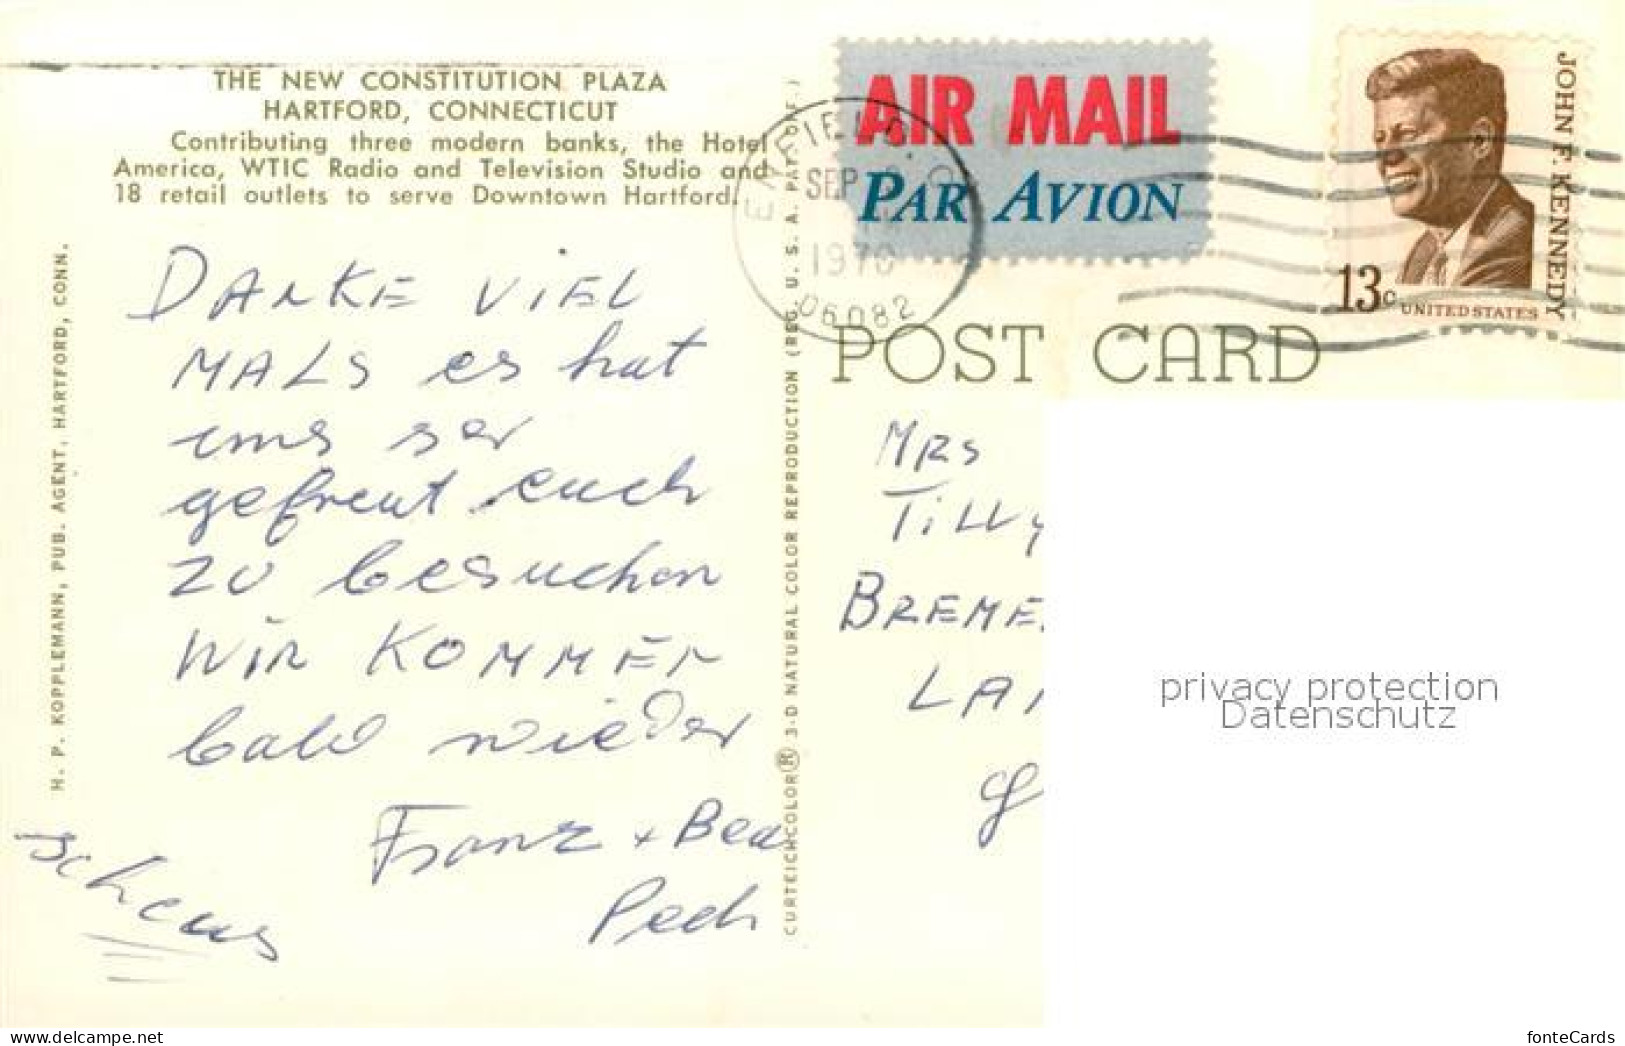 THE NEW CONSTITUTION PLAZA
HARTFORD, CONNECTICUT
Contributing three modern banks, the Hotel
America, WTIC Radio and Television Studio and
18 retail outlets to serve Downtown Hartford.
H. P. KOPPLEMANN, PUB. AGENT, HARTFORD, CONN.
DANKE VIEL
MALS es hat
uns ser
gefreut euch
zu besuchen
WIR KOMMEN
bald wieder
Franz + Bea
Pech
CURTEICHCOLOR® 3-D NATURAL COLOR REPRODUCTION (REG. U. S. A. PAT. OFF.)
ENFIELD, CO
SEP
1970
06082
AIR MAIL
PAR AVION
JOHN F. KENNEDY
13c
UNITED STATES
POST CARD
MRS
TILLY
BREME
LA
privacy protection
Datenschutz
delcampe.net
fonteCards